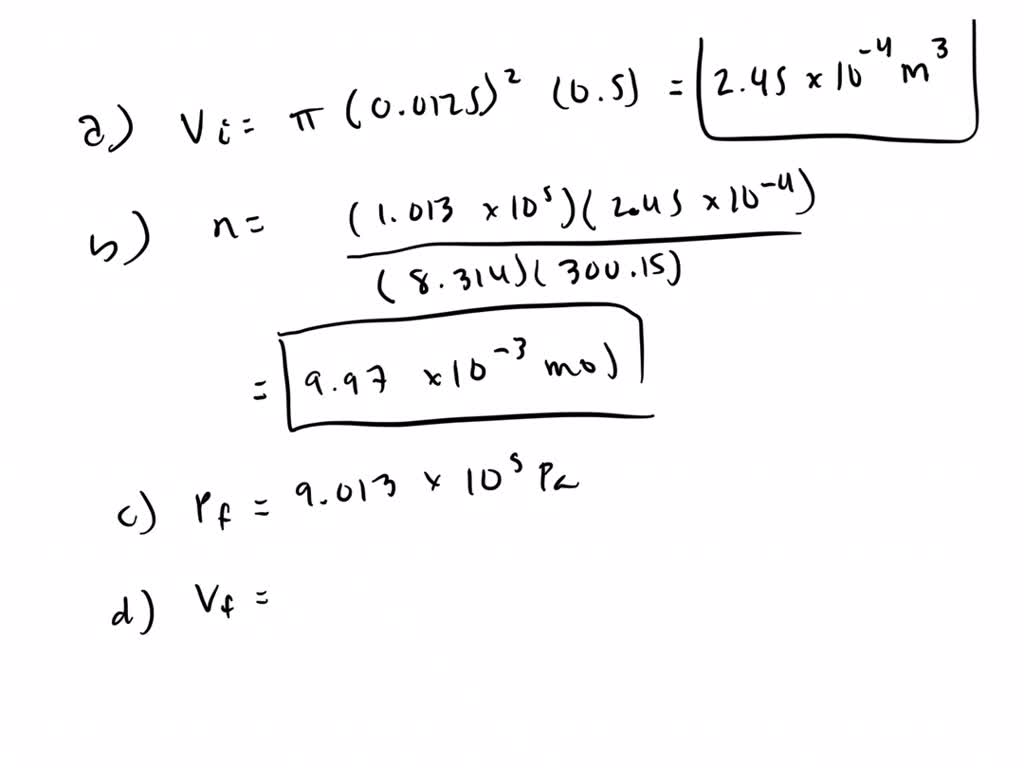 a) Vi = π (0.0125)² (0.5) = 2.45 × 10⁻⁴ m³
b) n = (1.013 × 10⁵)(2.45 × 10⁻⁴)
(8.314)(300.15)
= 9.97 × 10⁻³ mol
c) Pf = 9.013 × 10⁵ Pa
d) Vf =